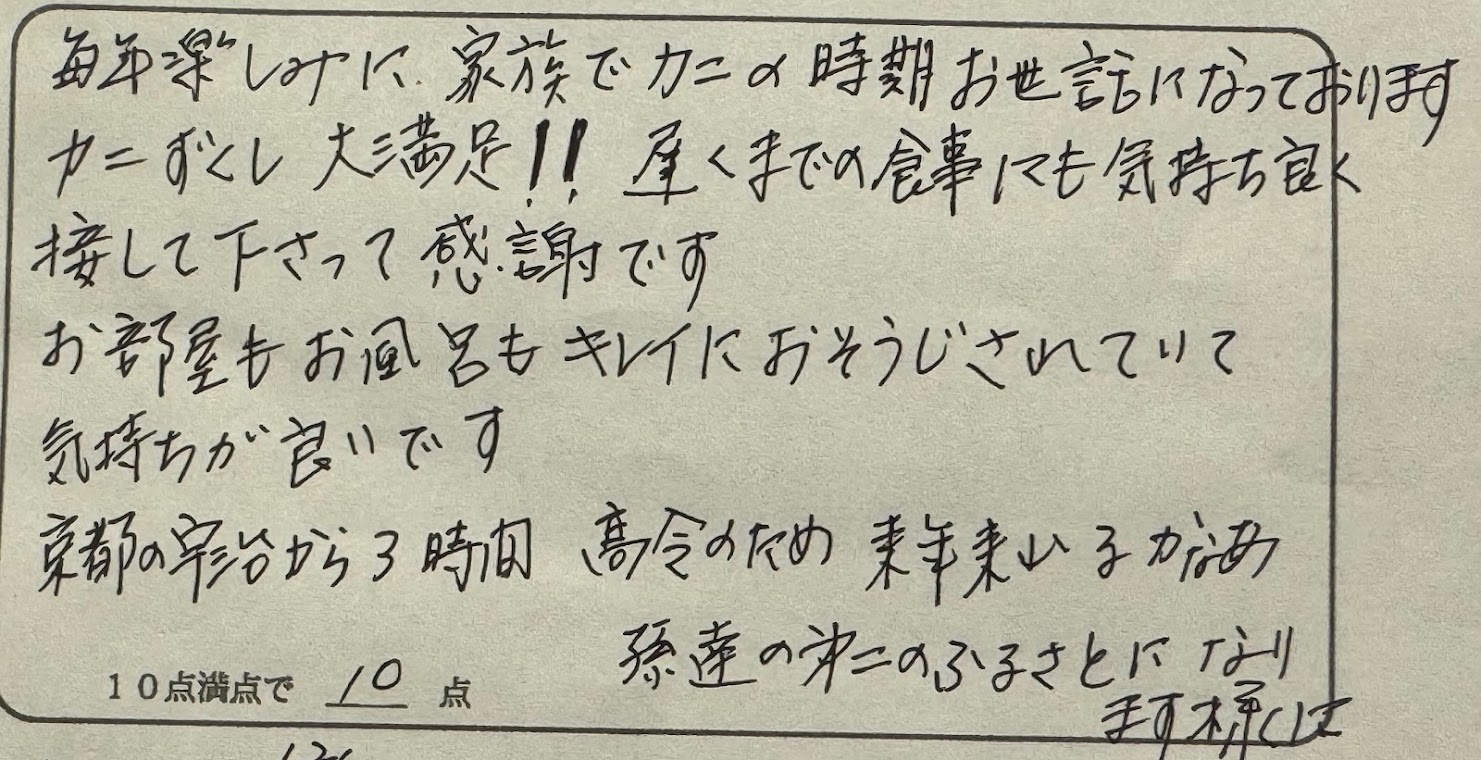 毎年楽しみに、家族でカニの時期お世話になっております
カニずくし 大満足!! 遅くまでの食事にも気持ち良く
接して下さって感謝です
お部屋もお風呂もキレイにおそうじされていて
気持ちが良いです
京都の宇治から3時間 高令のため 来年来れるかなあ
孫達の第二のふるさとになり
ます様に
10点満点で 10 点